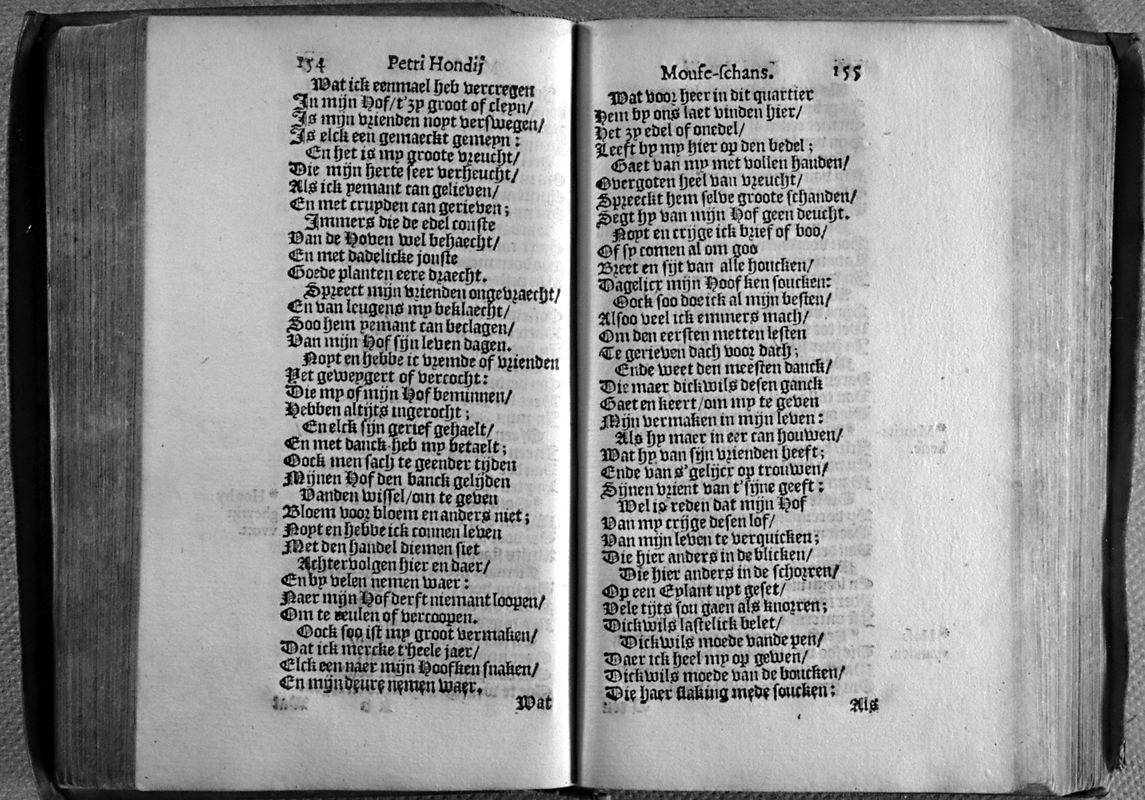 154 Petri Hondij
Wat ick eenmael heb vercregen
In mijn Hof/t'zy groot of cleyn/
Is mijn vrienden noyt verswegen/
Is elck een gemaeckt gemeyn:
En het is my groote vreucht/
Die mijn herte seer verheucht/
Als ick yemant can gelieven/
En met cruyden can gerieven;
Immers die de edel conste
Van de Hoven wel behaecht/
En met dadelicke jonste
Goede planten eere draecht.
Spreect mijn vrienden ongevraecht/
En van leugens my beklaecht/
Soo hem yemant can beclagen/
Van mijn Hof sijn leven dagen.
Noyt en hebbe ic vremde of vrienden
Yet geweygert of vercocht:
Die my of mijn Hof beminnen/
Hebben altijts ingerocht;
En elck sijn gerief gehaelt/
En met danck heb my betaelt;
Oock men sach te geender tijden
Mijnen Hof den banck gelijden
Vanden wissel/om te geven
Bloem voor bloem en anders niet;
Noyt en hebbe ick connen leven
Met den handel diemen siet
Achtervolgen hier en daer/
En by velen nemen waer:
Naer mijn Hof derft niemant loopen/
Om te reulen of vercoopen.
Oock soo ist my groot vermaken/
Dat ick mercke t'heele jaer/
Elck een naer mijn Hoofken snaken/
En mijn deure nemen waer.
Wat
Mouse-schans. 155
Wat voor heer in dit quartier
Hem by ons laet vinden hier/
Het zy edel of onedel/
Leeft by my hier op den bedel;
Gaet van my met vollen handen/
Overgoten heel van vreucht/
Spreeckt hem selve groote schanden/
Segt hy van mijn Hof geen deucht.
Noyt en crijge ick brief of boo/
Of sy comen al om goo
Breet en sijt van alle houcken/
Dagelicx mijn Hoofken soucken:
Oock soo doe ick al mijn besten/
Alsoo veel ick emmers mach/
Om den eersten metten lesten
Te gerieven dach voor dach;
Ende weet den meesten danck/
Die maer dickwils desen ganck
Gaet en keert/om my te geven
Mijn vermaken in mijn leven:
Als hy maer in eer can houwen/
Wat hy van sijn vrienden heeft;
Ende van s'gelijcx op trouwen/
Sijnen vrient van t'sijne geeft:
Wel is reden dat mijn Hof
Van my crijge desen lof/
Van mijn leven te verquicken;
Die hier anders in de blicken/
Die hier anders in de schorren/
Op een Eylant uyt geset/
Vele tijts sou gaen als knorren;
Dickwils lastelick belet/
Dickwils moede vande pen/
Daer ick heel my op gewen/
Dickwils moede van de boucken/
Die haer flaking mede soucken:
Als